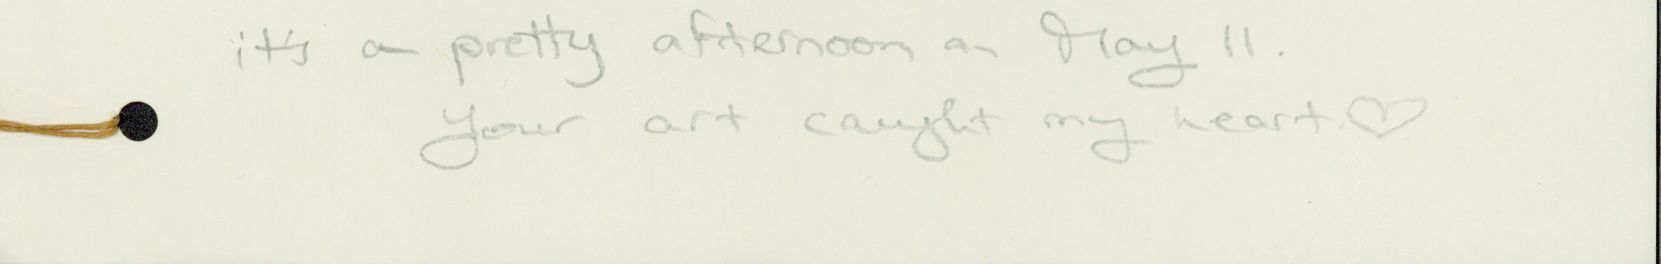 it's a pretty afternoon on May 11.
your art caught my heart ♡